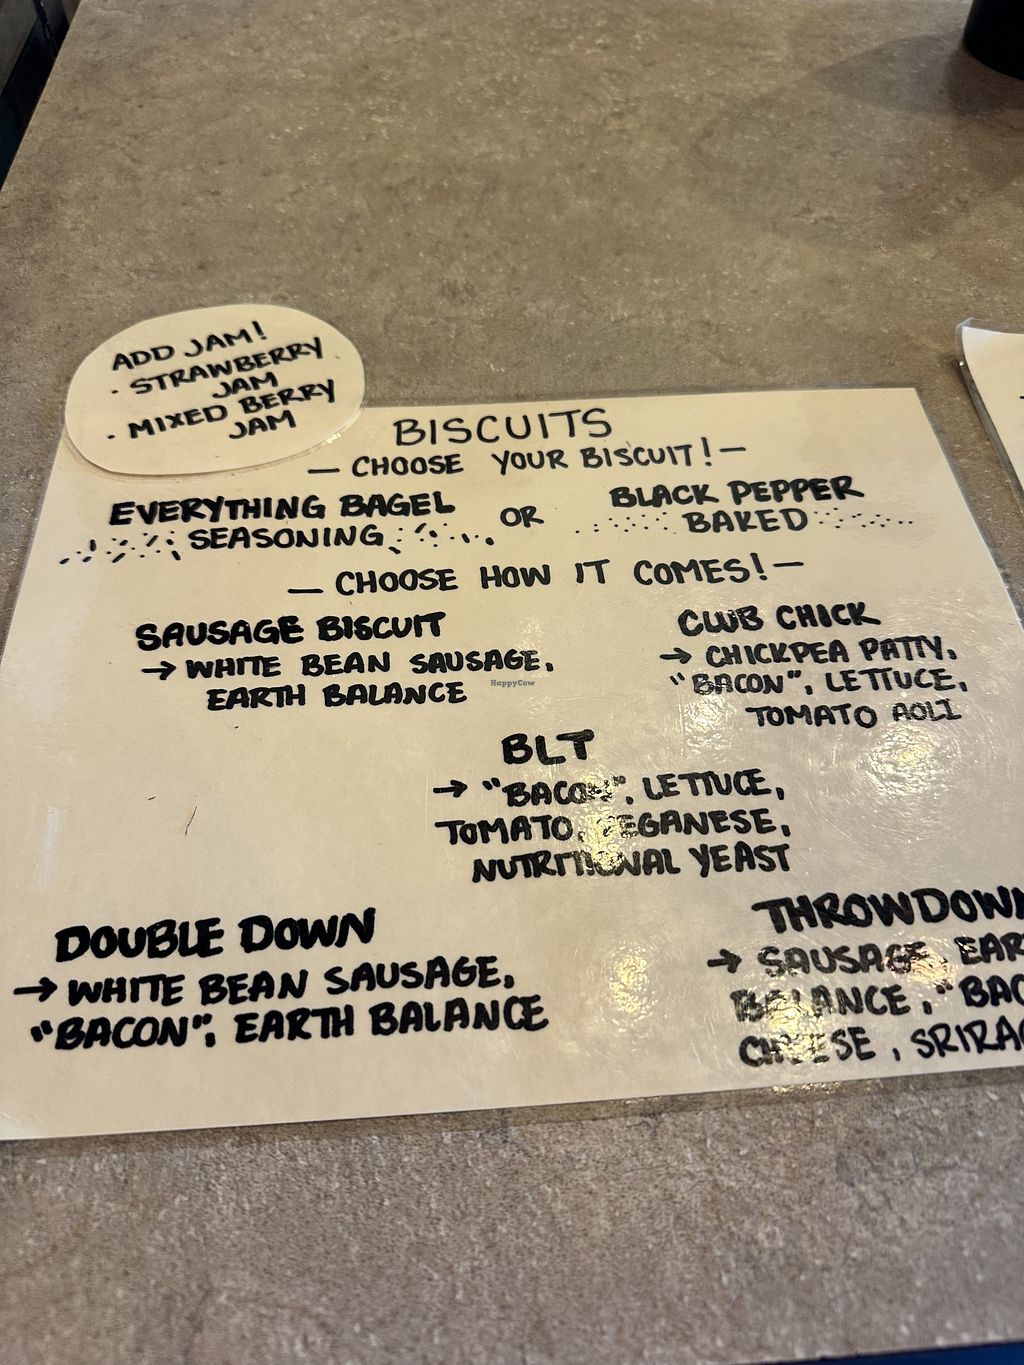 ADD JAM!
· STRAWBERRY
JAM
· MIXED BERRY
JAM
BISCUITS
— CHOOSE YOUR BISCUIT! —
EVERYTHING BAGEL
SEASONING
OR
BLACK PEPPER
BAKED
— CHOOSE HOW IT COMES! —
SAUSAGE BISCUIT
→ WHITE BEAN SAUSAGE,
EARTH BALANCE
CLUB CHICK
→ CHICKPEA PATTY,
"BACON", LETTUCE,
TOMATO AOLI
HappyCow
BLT
→ "BACON", LETTUCE,
TOMATO, VEGANESE,
NUTRITIONAL YEAST
DOUBLE DOWN
→ WHITE BEAN SAUSAGE,
"BACON", EARTH BALANCE
THROWDOWN
→ SAUSAGE, EAR
BALANCE, "BAC
CHEESE, SRIRAC